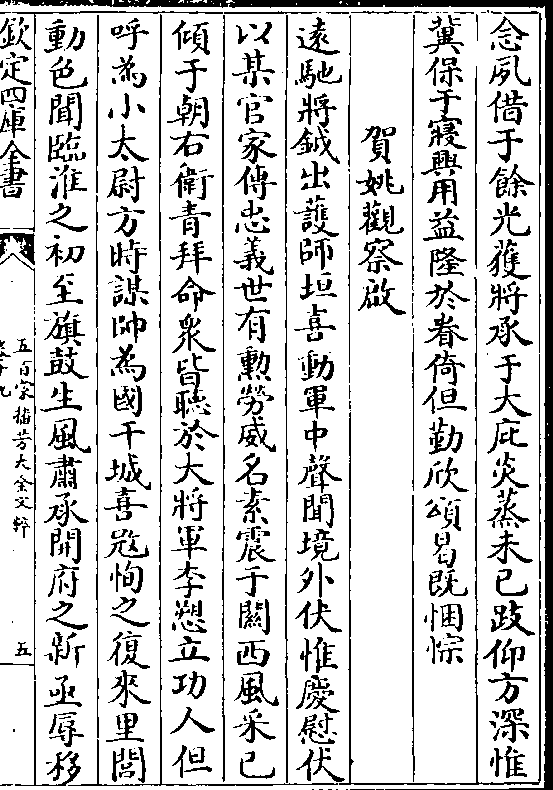 念夙借于餘光獲將承于大庇炎蒸未已跂仰方深惟
冀保于寢興用益隆於眷倚但勤欣頌曷既悃悰
賀姚觀察啟
遠馳將鉞出護師垣喜動軍中聲聞境外伏惟慶慰伏
以某官家傳忠義世有勲勞威名素震于關西風采已
傾于朝右衛青拜命衆皆聽於大將軍李愬立功人但
呼為小太尉方時謀帥為國干城喜冦恂之復來里閭
動色聞臨淮之初至旗鼓生風肅承開府之新亟辱移
欽定四庫全書
五百家播芳大全文粹
五